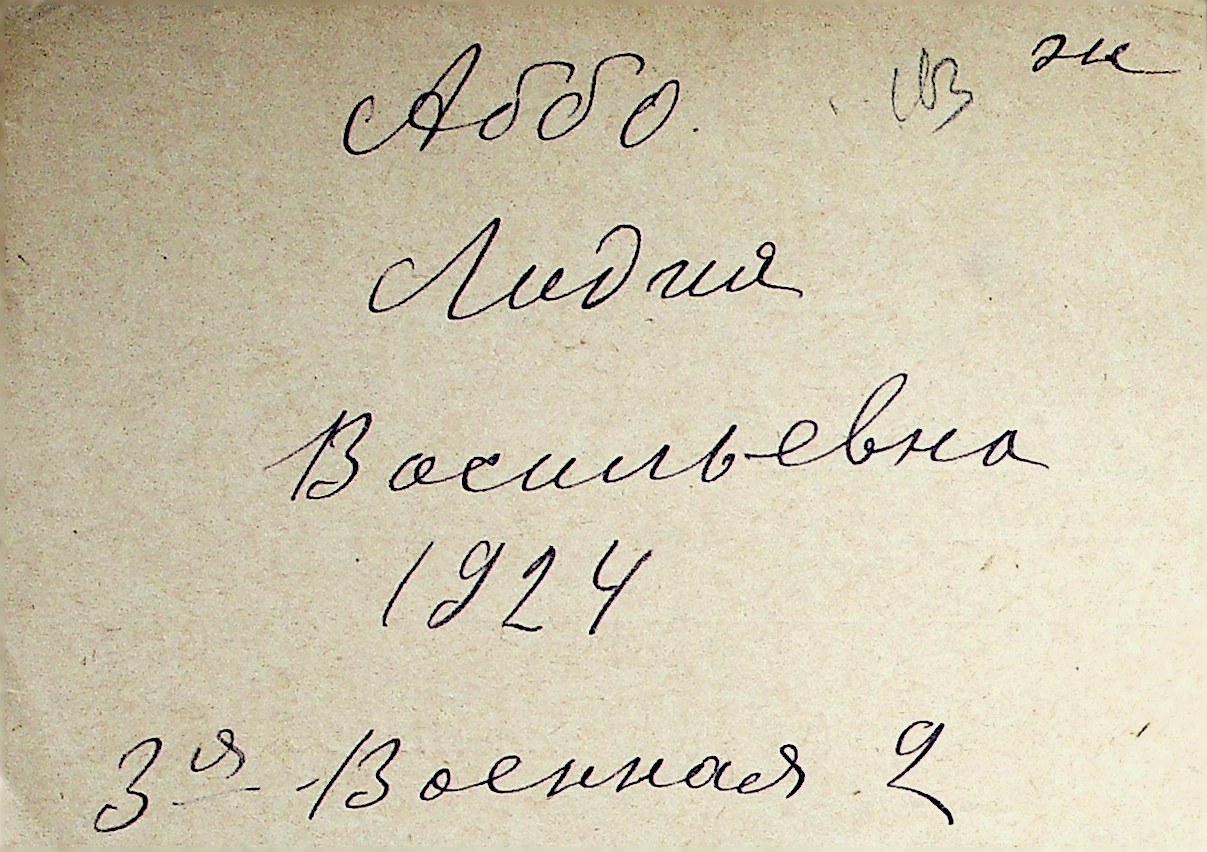 Аббо
Лидия
Васильевна
1924
3я Военная 2